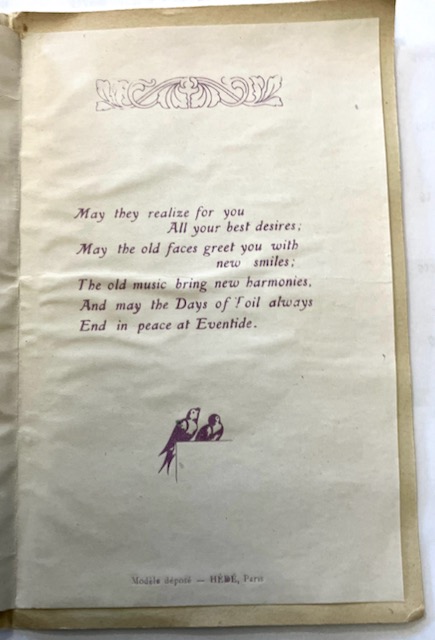 May they realize for you
All your best desires;
May the old faces greet you with
new smiles;
The old music bring new harmonies,
And may the Days of Toil always
End in peace at Eventide.
Modèle déposé — HÉDÉ, Paris